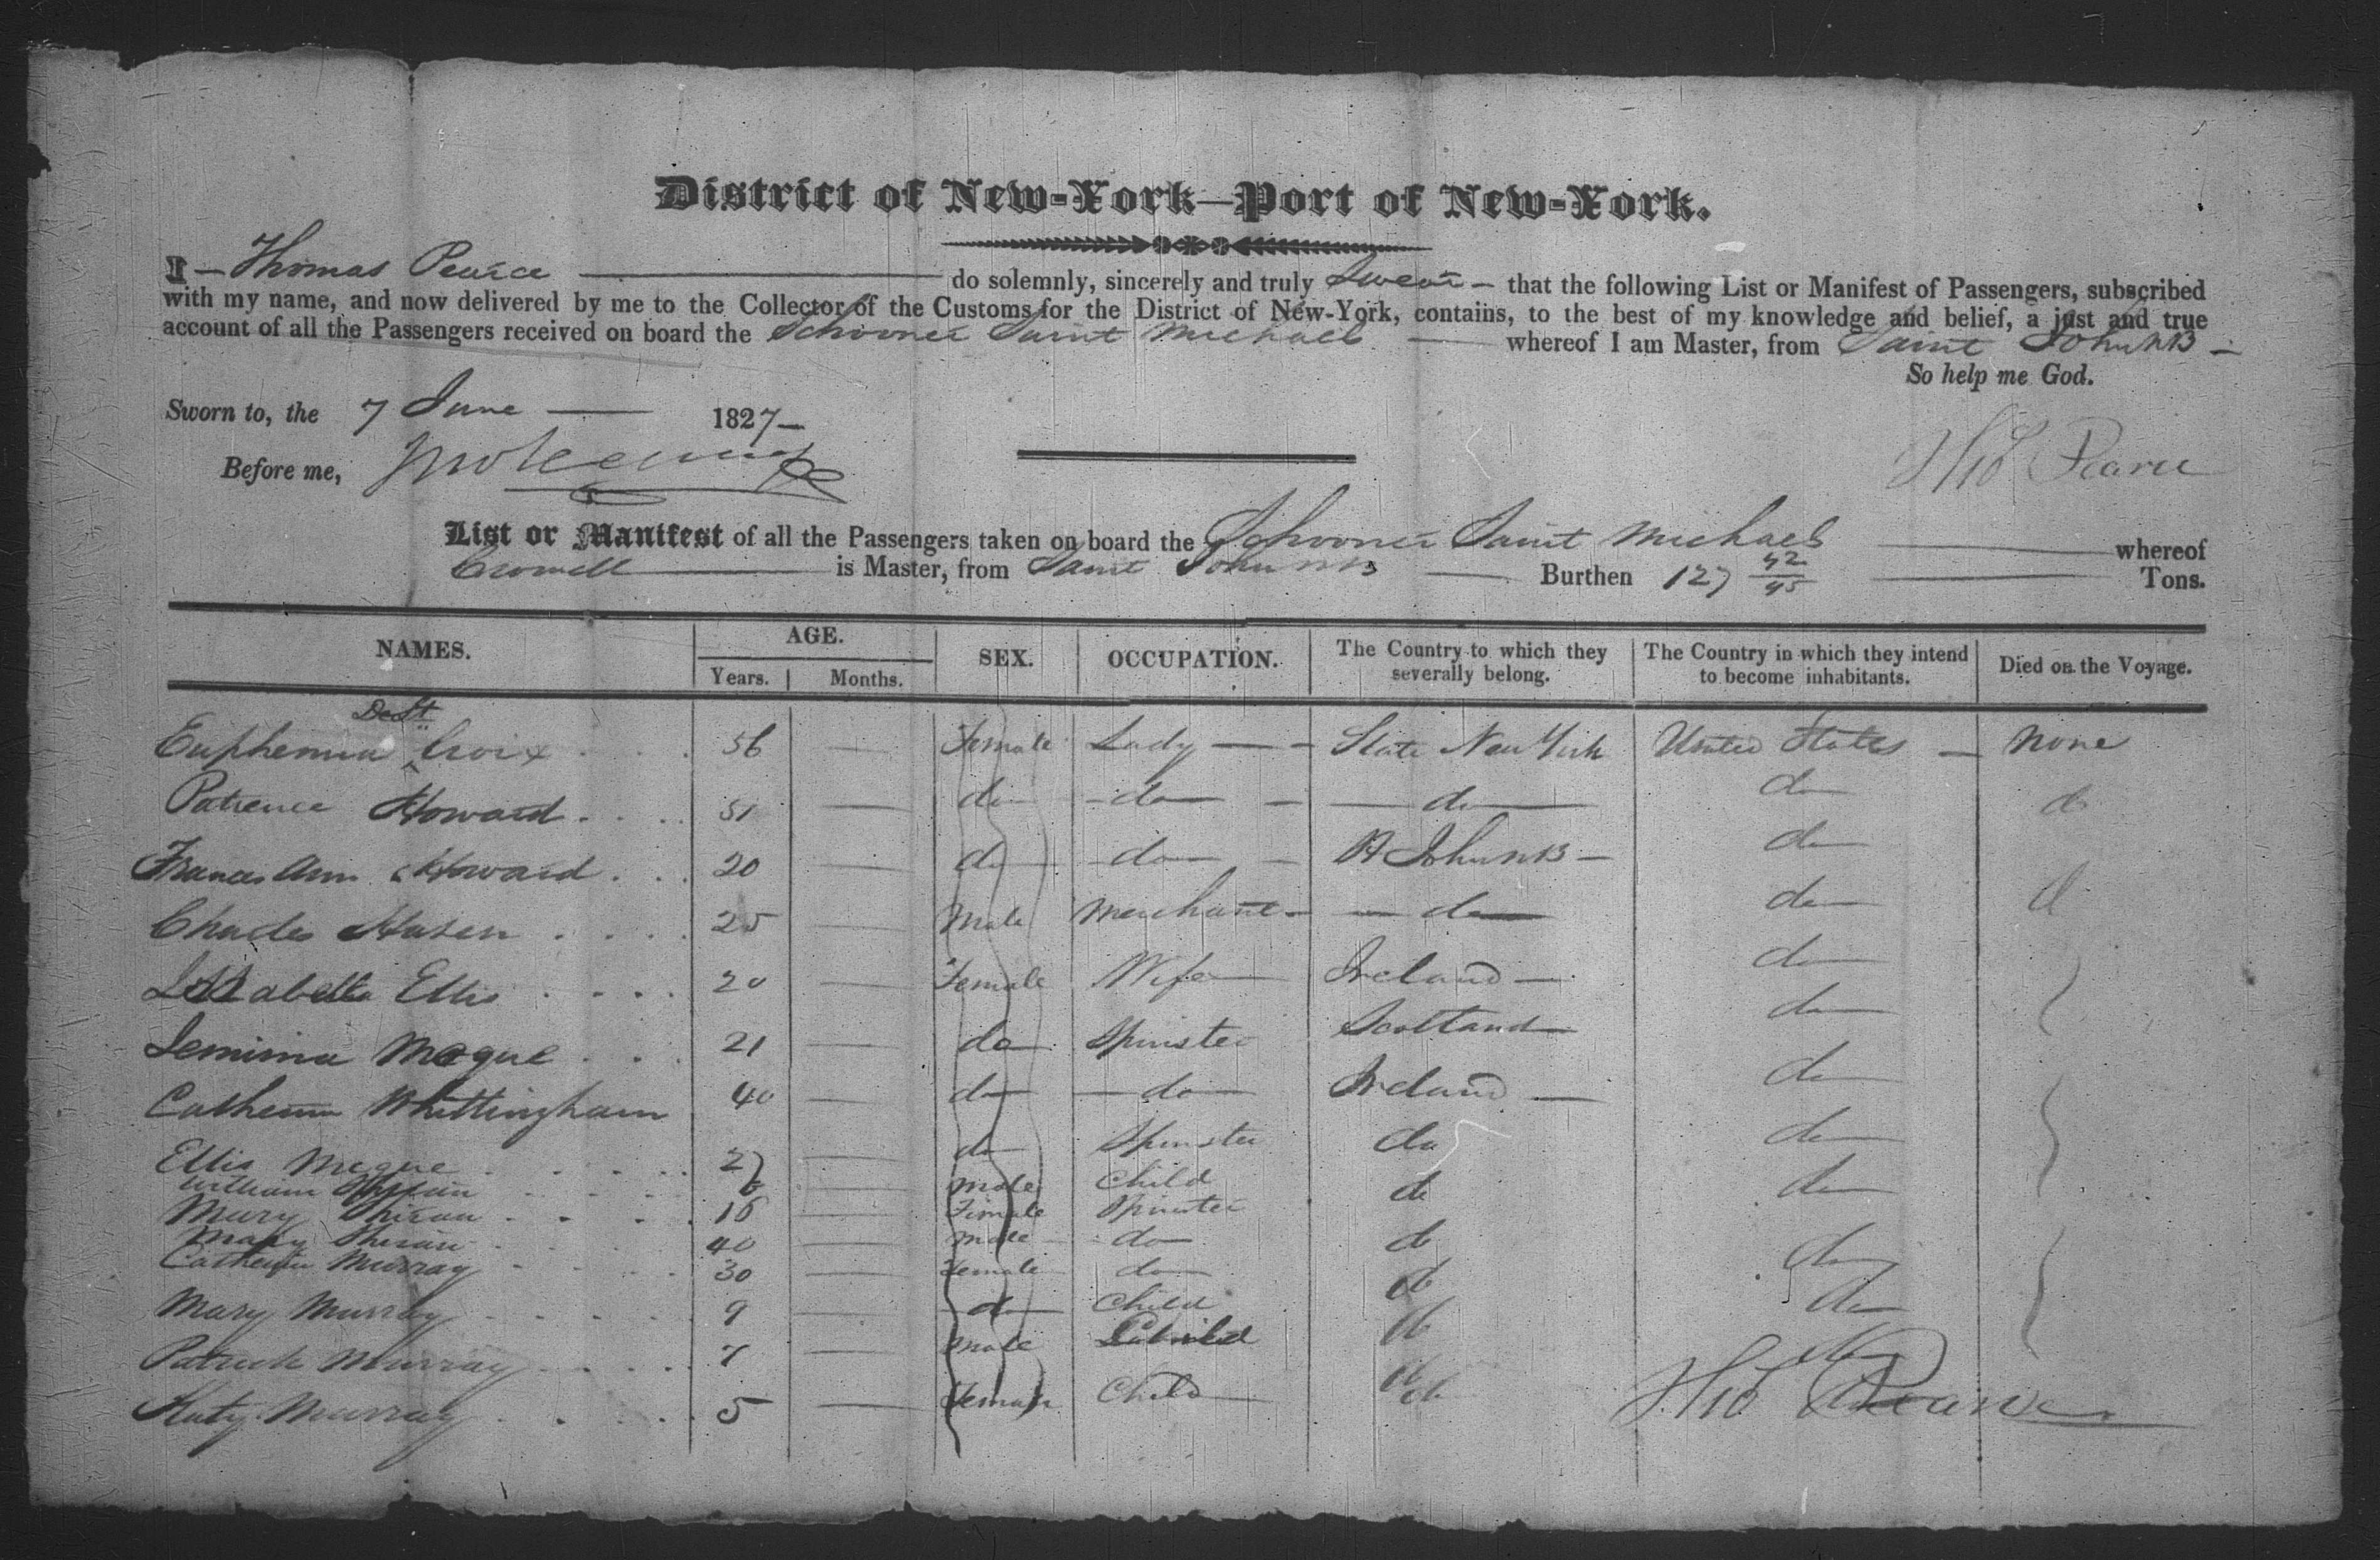 District of New-York—Port of New-York.
I — Thomas Pearce — do solemnly, sincerely and truly Swear — that the following List or Manifest of Passengers, subscribed
with my name, and now delivered by me to the Collector of the Customs for the District of New-York, contains, to the best of my knowledge and belief, a just and true
account of all the Passengers received on board the Schooner Saint Michael — whereof I am Master, from Saint John NB —
So help me God.
Sworn to, the 7 June — 1827 —
Before me,
Tho Pearce
List or Manifest of all the Passengers taken on board the Schooner Saint Michael — whereof
Crowell — is Master, from Saint John NB — Burthen 127 42/95 — Tons.
NAMES. AGE. SEX. OCCUPATION. The Country to which they severally belong. The Country in which they intend to become inhabitants. Died on the Voyage.
Years. Months.
Euphemia Croix 56 — Female Lady — State New York United States — None
Patience Howard 51 — do do — do — do do
Frances Ann Howard 20 — do do — St John NB — do
Charles Hasen 25 — Male Merchant — do — do d
Issabella Ellis 20 — Female Wife Ireland — do
Jemima Mague 21 — do Spinster Scotland do
Catherine Whittingham 40 — do — do Ireland — do
Ellis Megue 27 — do Spinster do do
William 6 — Male Child do do
Mary Shiran 16 — Female Spinster
Mary Sheran 40 — Male do do do
Catherine Murray 30 — Female do do do
Mary Murray 9 — do Child do do
Patrick Murray 7 — Male do
Katy Murray 5 — Female Child do
Tho Pearce